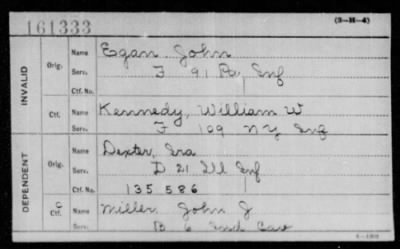 161333
(3-H-4)
INVALID
Orig. Name Egan, John
Serv. F 91 Pa. Inf
Ctf. No.
Ctf. Name Kennedy, William W
Serv. F 109 N Y Inf
DEPENDENT
Orig. Name Dexter, Ira
Serv. D 21 Ill Inf
Ctf. No. 135586
C Ctf. Name Miller, John J
Serv. B 6 Ind Cav